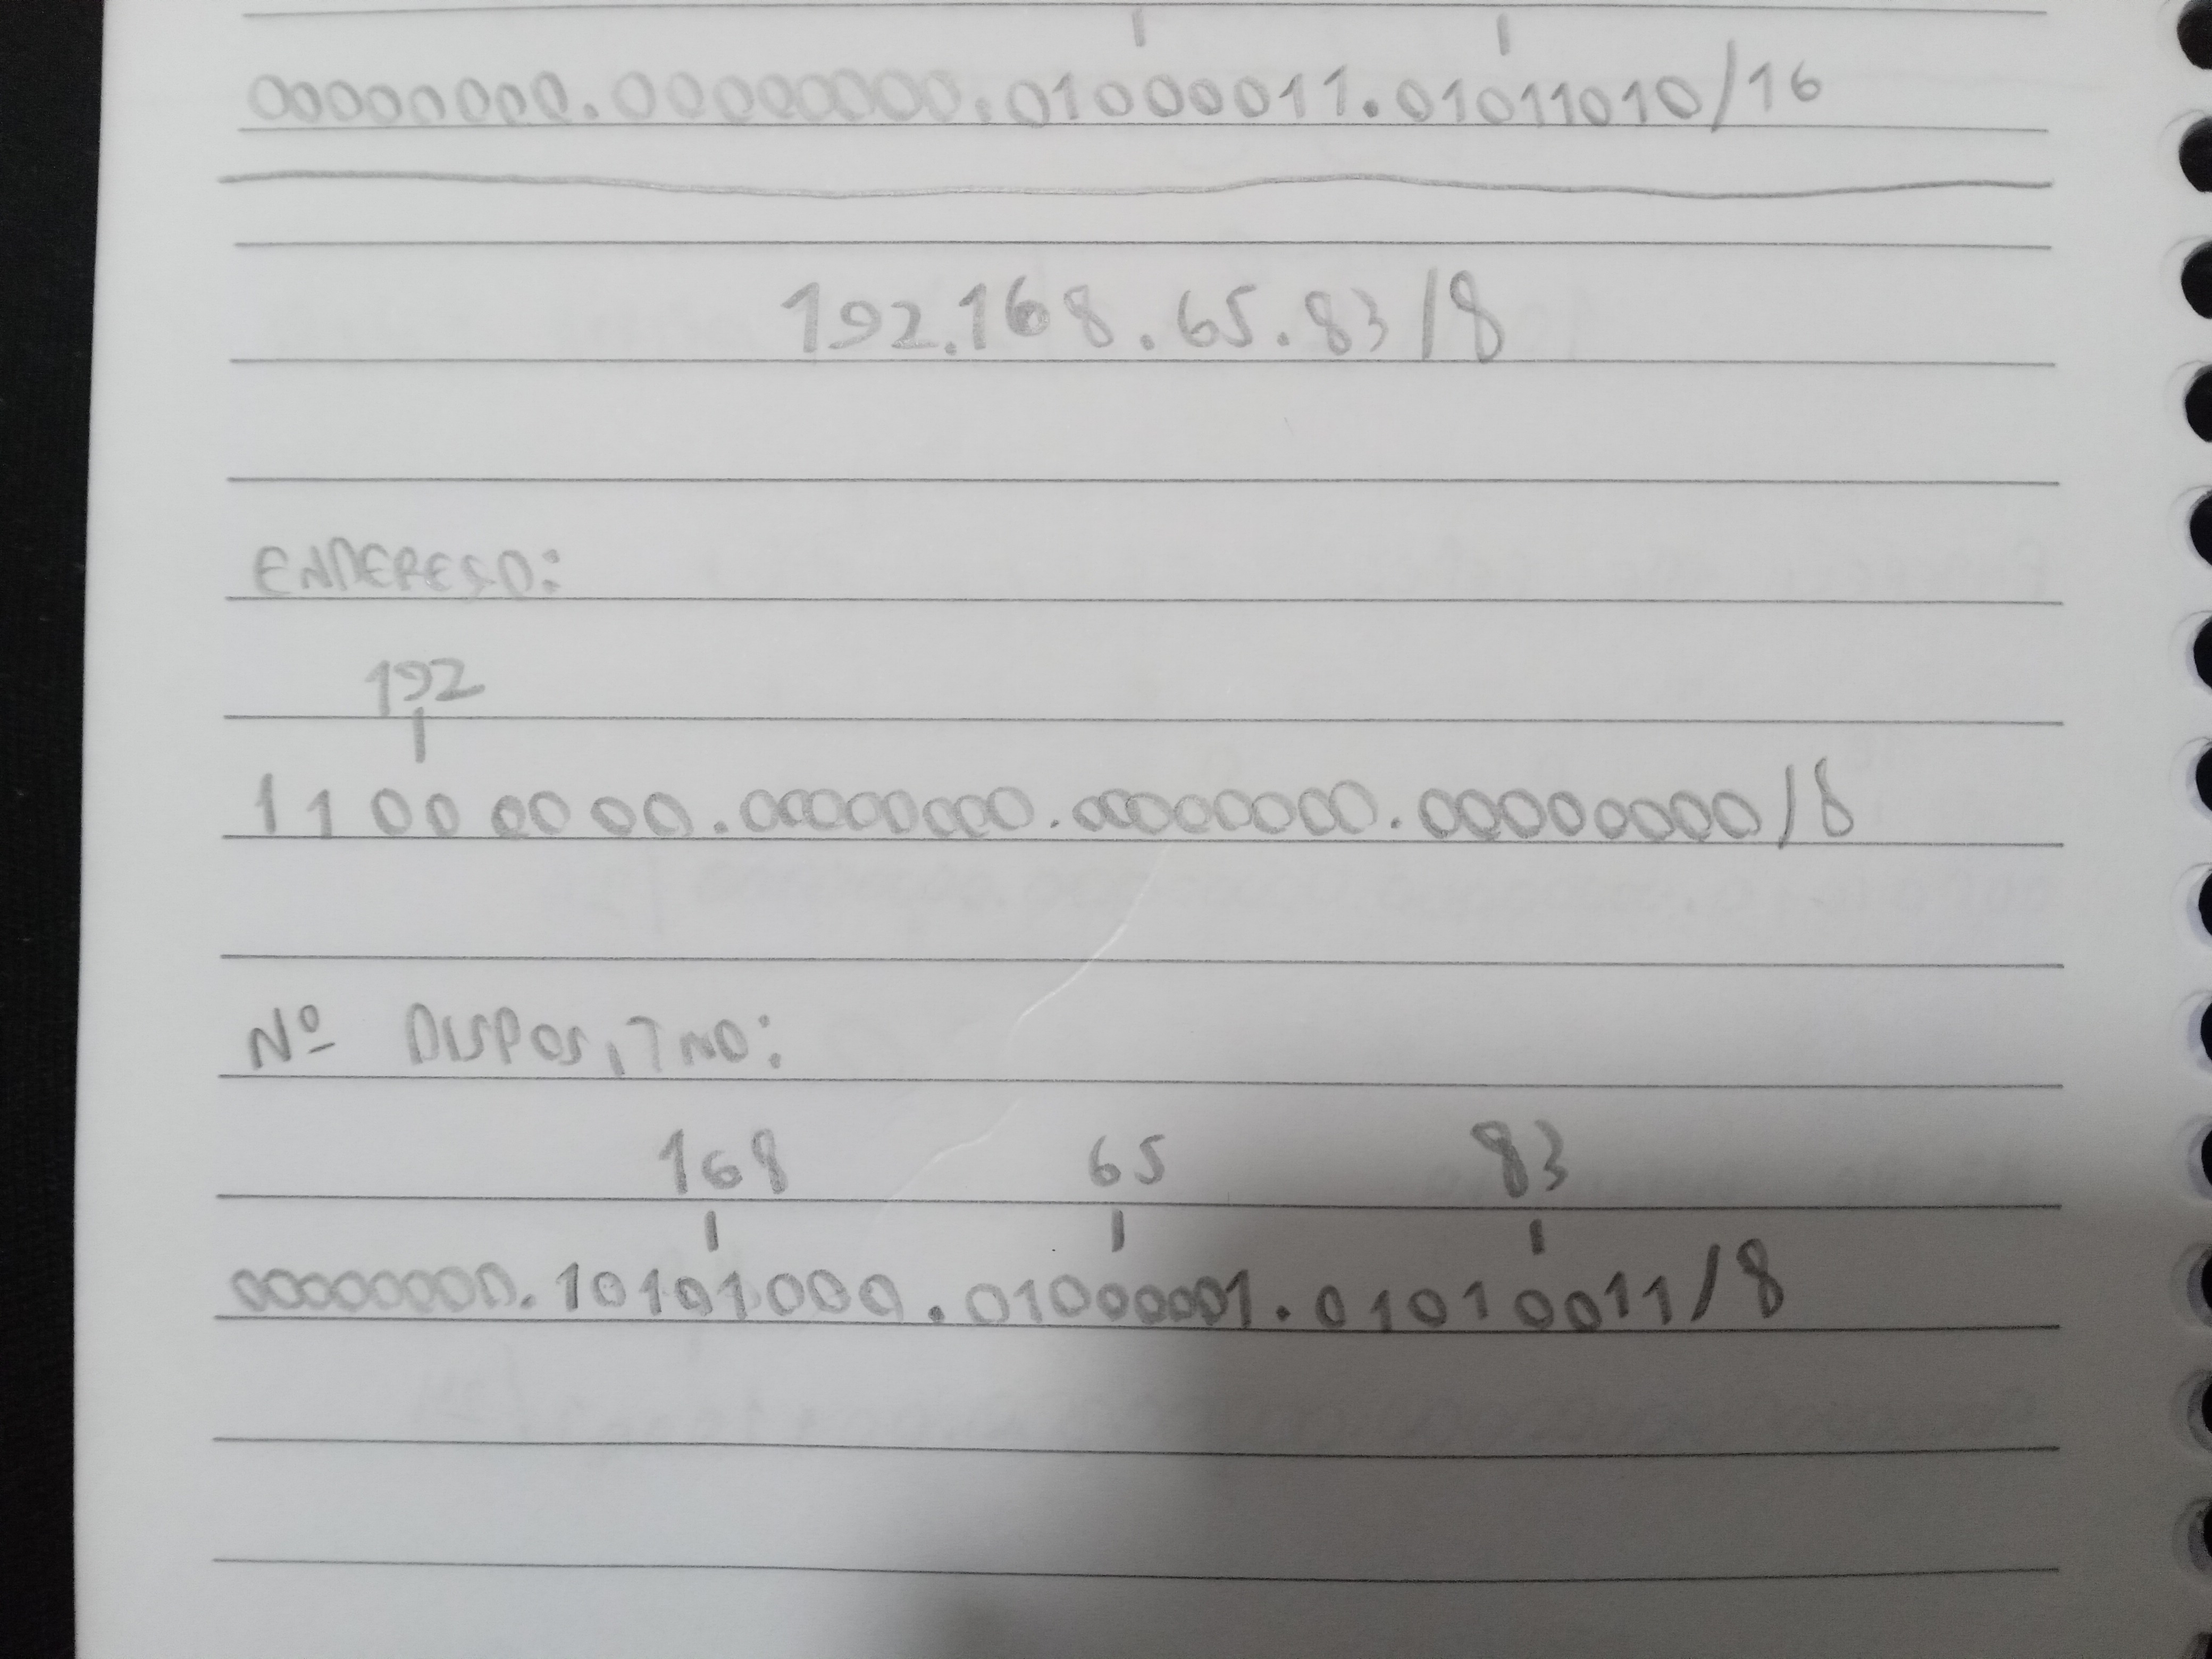 00000000.00000000.01000011.01011010/16
192.168.65.83/8
ENDEREÇO:
192
11000000.00000000.00000000.00000000/8
Nº DISPOSITIVO:
168 65 83
00000000.10101000.01000001.01010011/8